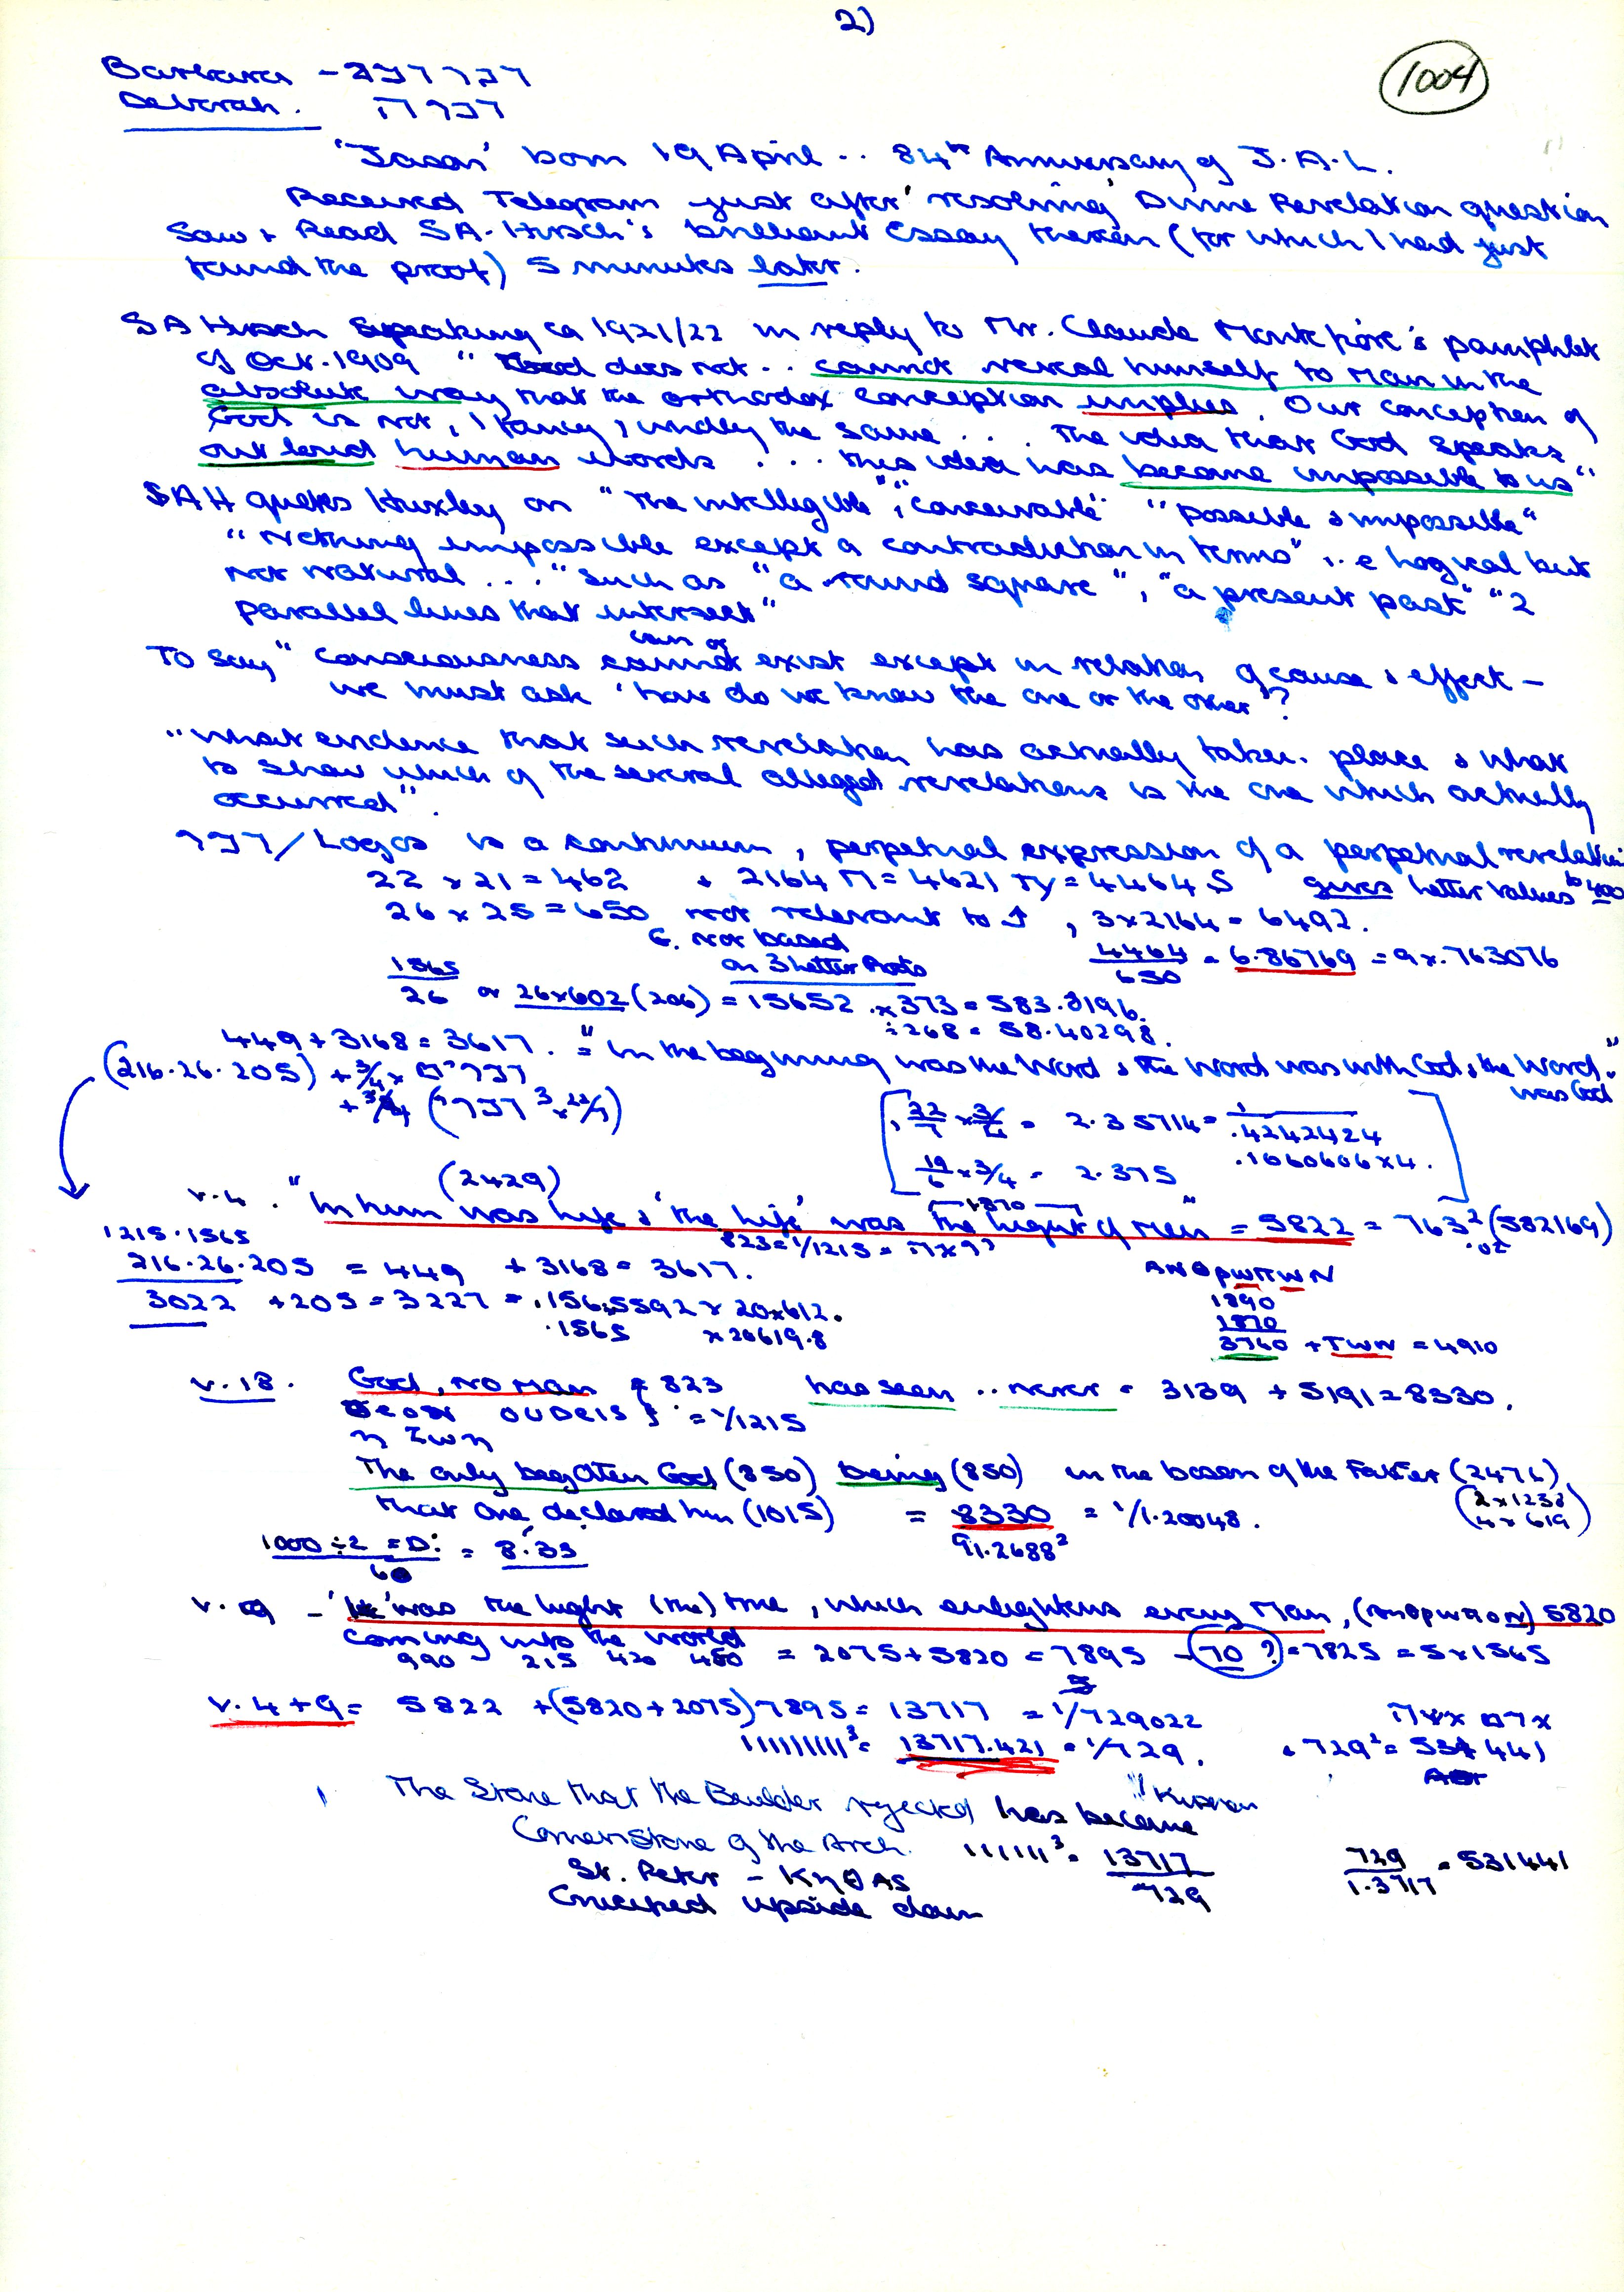 2)
1004
Barbara –
Deborah. דברה
'Jason' born 19 April .. 84th Anniversary of J.A.L.
Received Telegram just after 'resolving' Divine Revelation question
Saw + Read SA. Hirsch's brilliant Essay therein (for which I had just
found the proof) 5 minutes later.
SA Hirsch speaking ca 1921/22 in reply to Mr. Claude Montefiore's pamphlet
of Oct. 1909 " God does not .. cannot reveal himself to Man in the
absolute way that the orthodox conception implies. Our conception of
God is not, I fancy, wholly the same ... The idea that God speaks
out loud human words ... this idea has become impossible to us"
SAH quotes Huxley on "the intelligible", "conceivable" "possible & impossible"
"Nothing impossible except a contradiction in terms" i.e logical but
not natural ... "such as "a round square", "a present past" "2
parallel lines that intersect"
To say "consciousness cannot exist except in relation of cause & effect –
we must ask 'how do we know the one or the other'?
"What evidence that such revelation has actually taken place & what
to show which of the several alleged revelations is the one which actually
occurred".
דבר/Logos is a continuum, perpetual expression of a perpetual revelation
22 x 21 = 462 + 2164 = 4621 = 4464.5 gives letter values to 400
26 x 25 = 650 not relevant to , 3 x 2164 = 6492.
E. not based
on 3 letter Roots
4464/650 = 6.86769 = 9 x .763076
1565/26 or 26x602 (206) = 15652 .x 373 = 583.8196.
÷268 = 58.40298.
449 + 3168 = 3617. = "In the beginning was the Word & the Word was with God & the Word
was God"
(216.26.205) + 3/4 x
22/7 x 3/4 = 2.35714 = 1/.4242424
.1060606 x 4.
19/6 x 3/4 = 2.375
(2429)
1870
v.4. "In him was life & 'the life' was the light of Men" = 5822 = 763² (582169)
823 = 1/1215 =
1215.1565
216.26.205 = 449 + 3168 = 3617.
3022 + 205 = 3227 = .1565592 x 20x612.
.1565 x 20619.8
ANθρωπωN
1890
1870
3760 + TωN = 4910
v.18. God, no man 823 has seen .. never = 3139 + 5191 = 8330.
θεον ουδεis = 1/1215
η Zωη
The only begotten God (850) being (850) in the bosom of the Father (2476)
(2 x 1238
4 x 619)
that one declared him (1015) = 8330 = 1/1.20048.
91.2688²
1000 ÷ 2 = D: / 60 = 8.33
v. 9 – 'It' was the light (the) true, which enlightens every Man, (ANθρωπON) 5820
coming into the world
990 215 420 450 = 2075 + 5820 = 7895 – 70 ? = 7825 = 5 x 1565
v.4 + 9 = 5822 + (5820 + 2075) 7895 = 13717 = 1/729022
111111111³ = 13717.421 = 1/729. & 729² = 531441
The Stone that the Builder rejected has become
Cornerstone of the Arch. 1111111³ = 13717/729
729/1.3717 = 531441
St. Peter – KηθAS
Crucified upside down